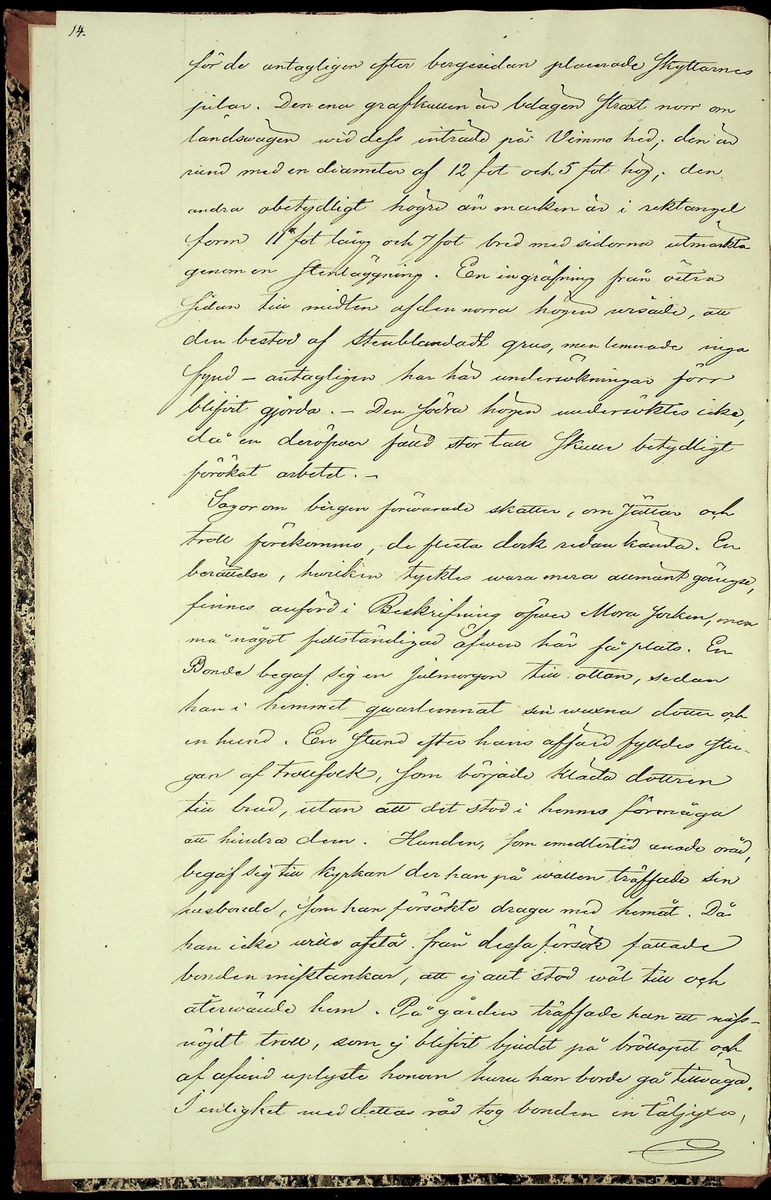 14.
för de antagligen efter bergssidan placerade Skyttarnes
pilar. Den ena grafkullen är belägen strax norr om
landsvägen wid dess inträde på Vimmo hed; den är
rund med en diameter af 12 fot och 5 fot hög; den
andra obetydligt högre än marken är i rektangel
form 11 fot lång och 7 fot bred med sidorna utmärkta
genom en Stenläggning. En ingräfning från östra
Sidan till midten af den norra högen wisade, att
den bestod af Stenblandadt grus, men lemnade inga
fynd – antagligen har här undersökningar förr
blifvit gjorda. – Den södra högen undersöktes icke,
då en deröfver fälld stor tall skulle betydligt
förökat arbetet. –
Sagor om bergen förwarade skatter, om Jättar och
troll förekommo, de flesta dock redan kända. En
berättelse, hvilken tycktes wara mera allmänt gängse,
finnes anförd i Beskrifning öfver Mora Socken, men
må något fullständigad äfwen här få plats. En
Bonde begaf sig en julmorgon till ottan, sedan
han i hemmet qwarlemnat sin wuxna dotter och
en hund. En Stund efter hans affärd fylldes stu-
gan af trollfolk, som började kläda dottren
till brud, utan att det stod i hennes förmåga
att hindra dem. Hunden, som emedlertid anade oråd,
begaf sig till kyrkan der han på wallen träffade sin
husbonde, som han försökte draga med hemåt. Då
han icke wille afstå från dessa försök fattade
bonden misstankar, att ej allt stod wäl till och
återwände hem. På gården träffade han ett miss-
nöjdt troll, som ej blifvit bjudet på bröllopet och
af afund uplyste honom huru han borde gå tillwäga.
I enlighet med dettas råd tog bonden en täljyxa,